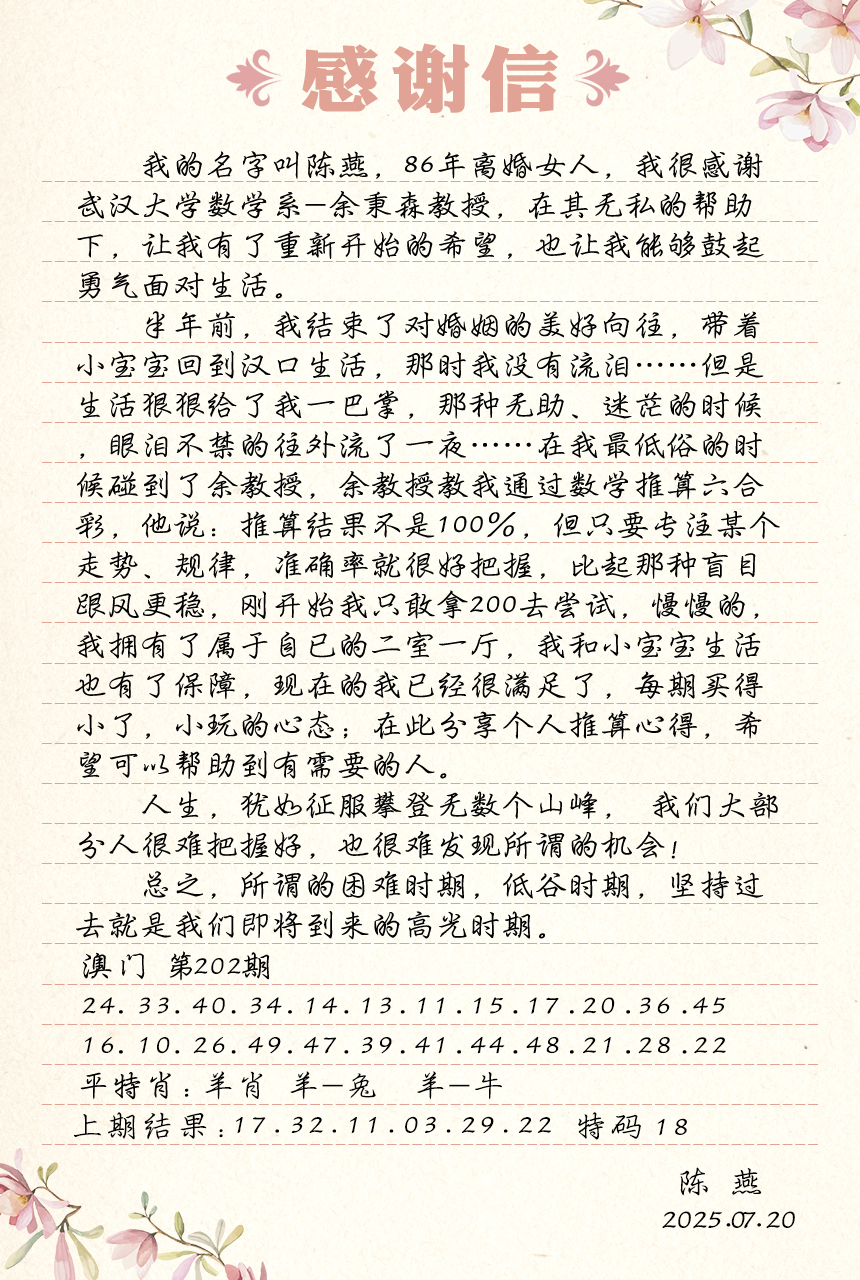 感谢信
我的名字叫陈燕，86年离婚女人，我很感谢
武汉大学数学系—余秉森教授，在其无私的帮助
下，让我有了重新开始的希望，也让我能够鼓起
勇气面对生活。
半年前，我结束了对婚姻的美好向往，带着
小宝宝回到汉口生活，那时我没有流泪……但是
生活狠狠给了我一巴掌，那种无助、迷茫的时候
，眼泪不禁的往外流了一夜……在我最低俗的时
候碰到了余教授，余教授教我通过数学推算六合
彩，他说：推算结果不是100%，但只要专注某个
走势、规律，准确率就很好把握，比起那种盲目
跟风更稳，刚开始我只敢拿200去尝试，慢慢的，
我拥有了属于自已的二室一厅，我和小宝宝生活
也有了保障，现在的我已经很满足了，每期买得
小了，小玩的心态；在此分享个人推算心得，希
望可以帮助到有需要的人。
人生，犹如征服攀登无数个山峰， 我们大部
分人很难把握好，也很难发现所谓的机会！
总之，所谓的困难时期，低谷时期，坚持过
去就是我们即将到来的高光时期。
澳门 第202期
24.33.40.34.14.13.11.15.17.20.36.45
16.10.26.49.47.39.41.44.48.21.28.22
平特肖：羊肖 羊—兔 羊—牛
上期结果：17.32.11.03.29.22 特码 18
陈 燕
2025.07.20